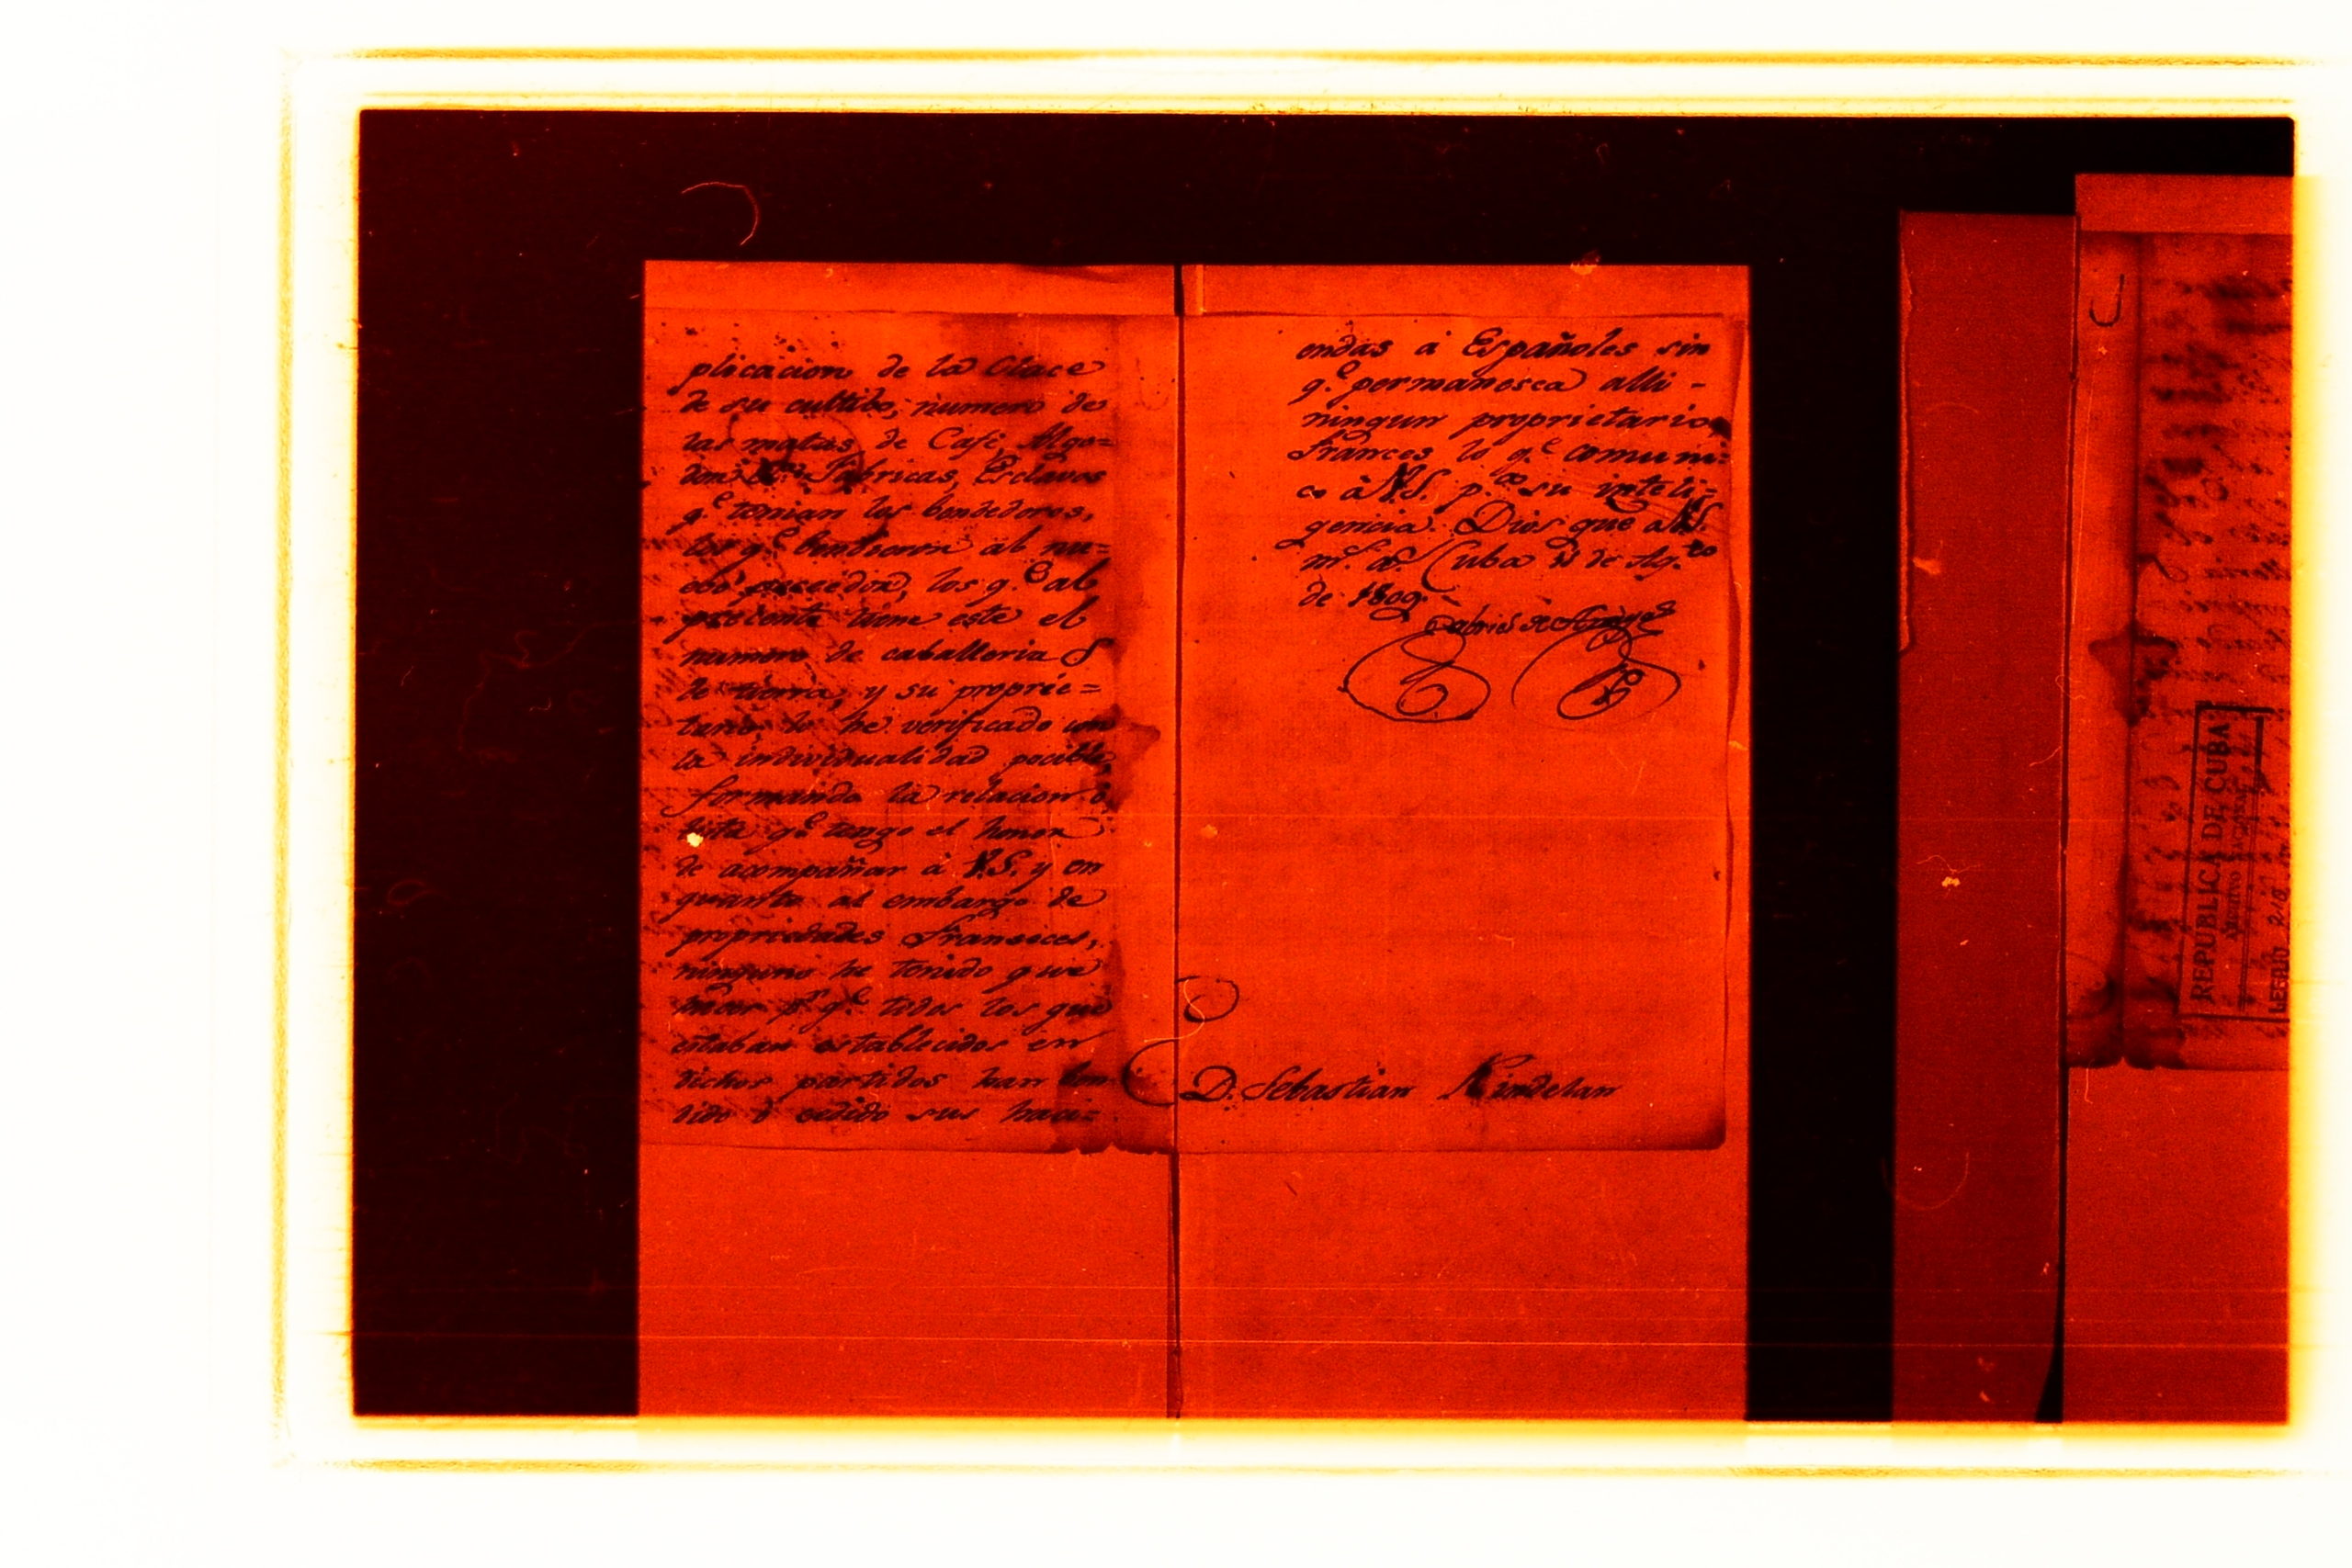 plicacion de la Clace
de su cultibo, numero de
las matas de Café, Algo=
don &a. Fabricas, Esclavos
q.e tenian los bendedores,
los q.e bendieron al nu=
ebo poceedor, los q.e al
precente tiene este el
numero de caballerias
de tierra, y su proprie=
tario, lo he verificado con
la individualidad pocible
formando la relacion
lista q.e tengo el honor
de acompañar á V.S. y en
quanto al embargo de
propriedades Franceces,
ninguno he tenido que
hacer p.r q.e todos los que
estaban establecidos en
dichos partidos han ben
dido ó cedido sus haci=
endas á Españoles sin
q.e permanesca alli -
ningun proprietario
Frances lo q.e comuni=
co á V.S. p.a su inteli=
gencia. Dios gue a V.S.
m.s a.s Cuba de Ag.to
de 1809.
Gabriel de
D. Sebastian Kindelan
REPUBLICA DE CUBA
ARCHIVO NACIONAL
LEGAJO 210